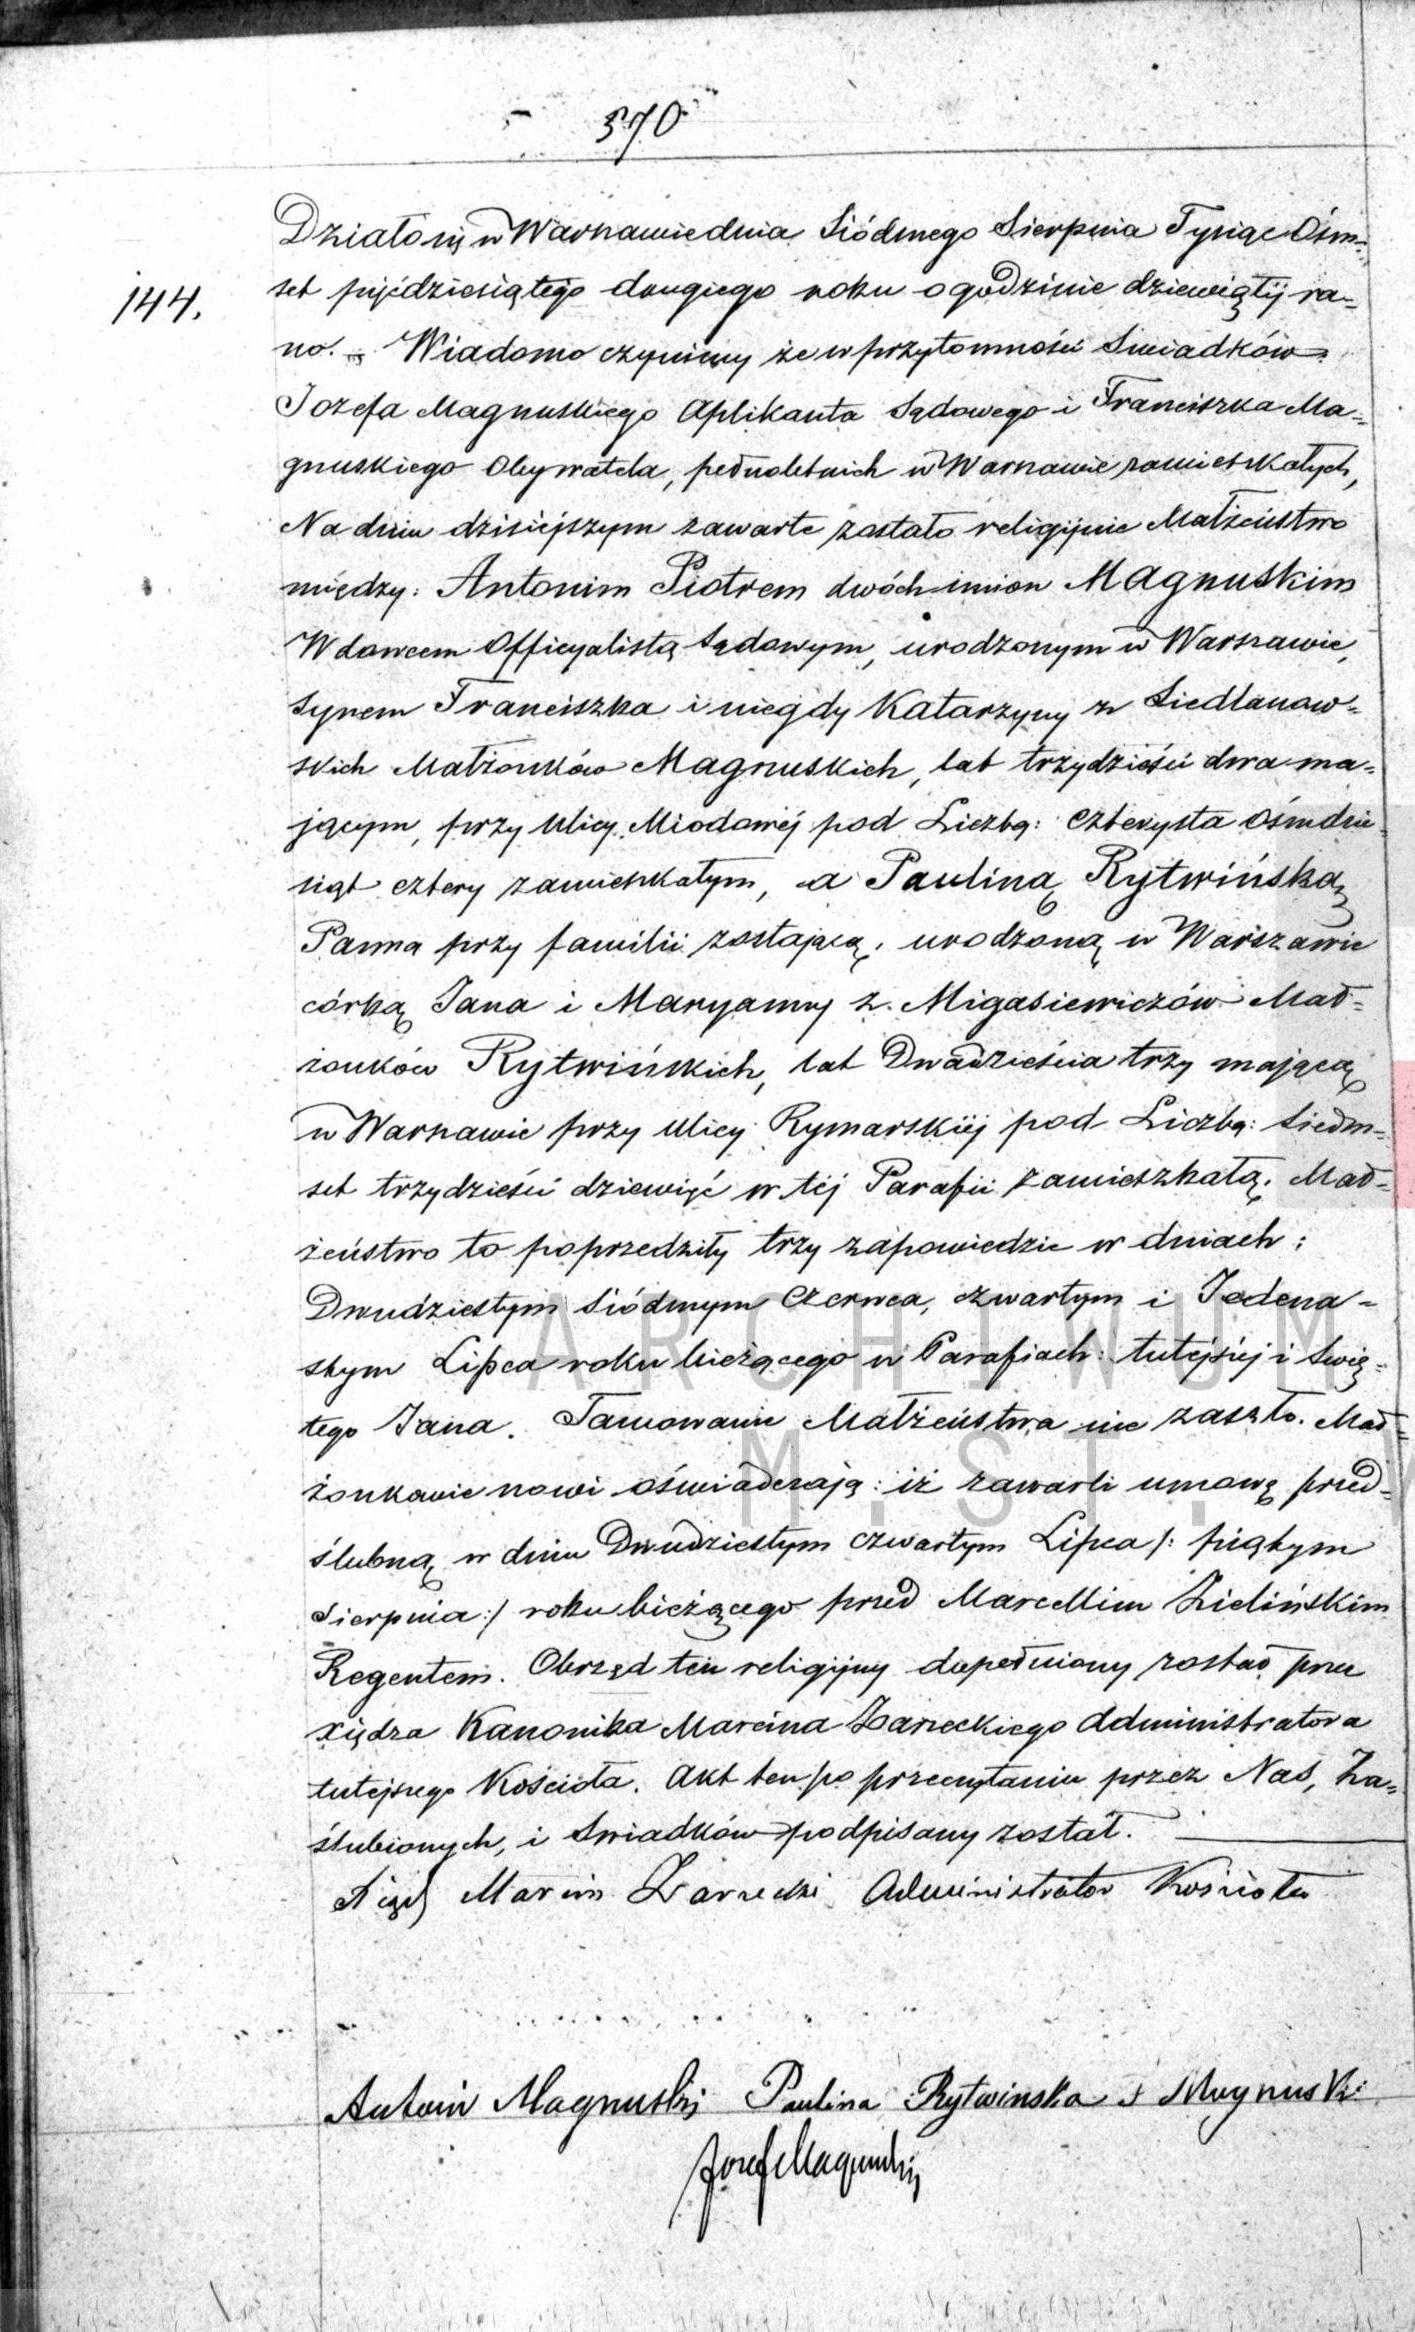 370
144.
Działo się w Warszawie dnia Siódmego Sierpnia Tysiąc Ośm=
set pięćdziesiątego drugiego roku o godzinie dziewiątéj ra=
no. Wiadomo czynimy że w przytomności Swiadków
Jozefa Magnuskiego Aplikanta Sądowego i Franciszka Ma=
gnuskiego Obywatela, pełnoletnich w Warszawie zamieszkałych,
Na dniu dzisiejszym zawarte zostało religijnie Małżeństwo
między: Antonim Piotrem dwóch imion Magnuskim
Wdowcem Officyalistą Sądowym, urodzonym w Warszawie,
synem Franciszka i niegdy Katarzyny z Siedlanow=
skich Małżonków Magnuskich, lat trzydzieści dwa ma=
jącym, przy Ulicy Miodowéj pod Liczbą: Czterysta Ośmdzie=
siąt cztery zamieszkałym, a Pauliną Rytwińską
Panną przy familii zostającą, urodzoną w Warszawie
córką Jana i Maryanny z Migasiewiczów Mał=
żonków Rytwińskich, lat Dwadzieścia trzy mającą
w Warszawie przy Ulicy Rymarskiéj pod Liczbą: Siedm=
set trzydzieści dziewięć w téj Parafii zamieszkałą. Mał=
żeństwo to poprzedziły trzy zapowiedzie w dniach:
Dwudziestym Siódmym Czerwca, czwartym i Jedena=
stym Lipca roku bieżącego w Parafiach: tutejszéj i Swię=
tego Jana. Tamowanie Małżeństwa nie zaszło. Mał=
żonkowie nowi oświadczają: iż zawarli umowę przed=
ślubną w dniu Dwudziestym czwartym Lipca /: piątym
Sierpnia :/ roku bieżącego przed Marcellim Zielińskim
Regentem. Obrzęd ten religijny dopełniony został przez
xiędza Kanonika Marcina Zarzeckiego Administratora
tutejszego Kościoła. Akt ten po przeczytaniu przez Nas, Za=
ślubionych, i Swiadków podpisany został.
Xiądz Marcin Zarzecki Administrator Kościoła
Antoni Magnuski Paulina Rytwinska F Magnuski
Jozef Magnuski
ARCHIWUM
M. ST.